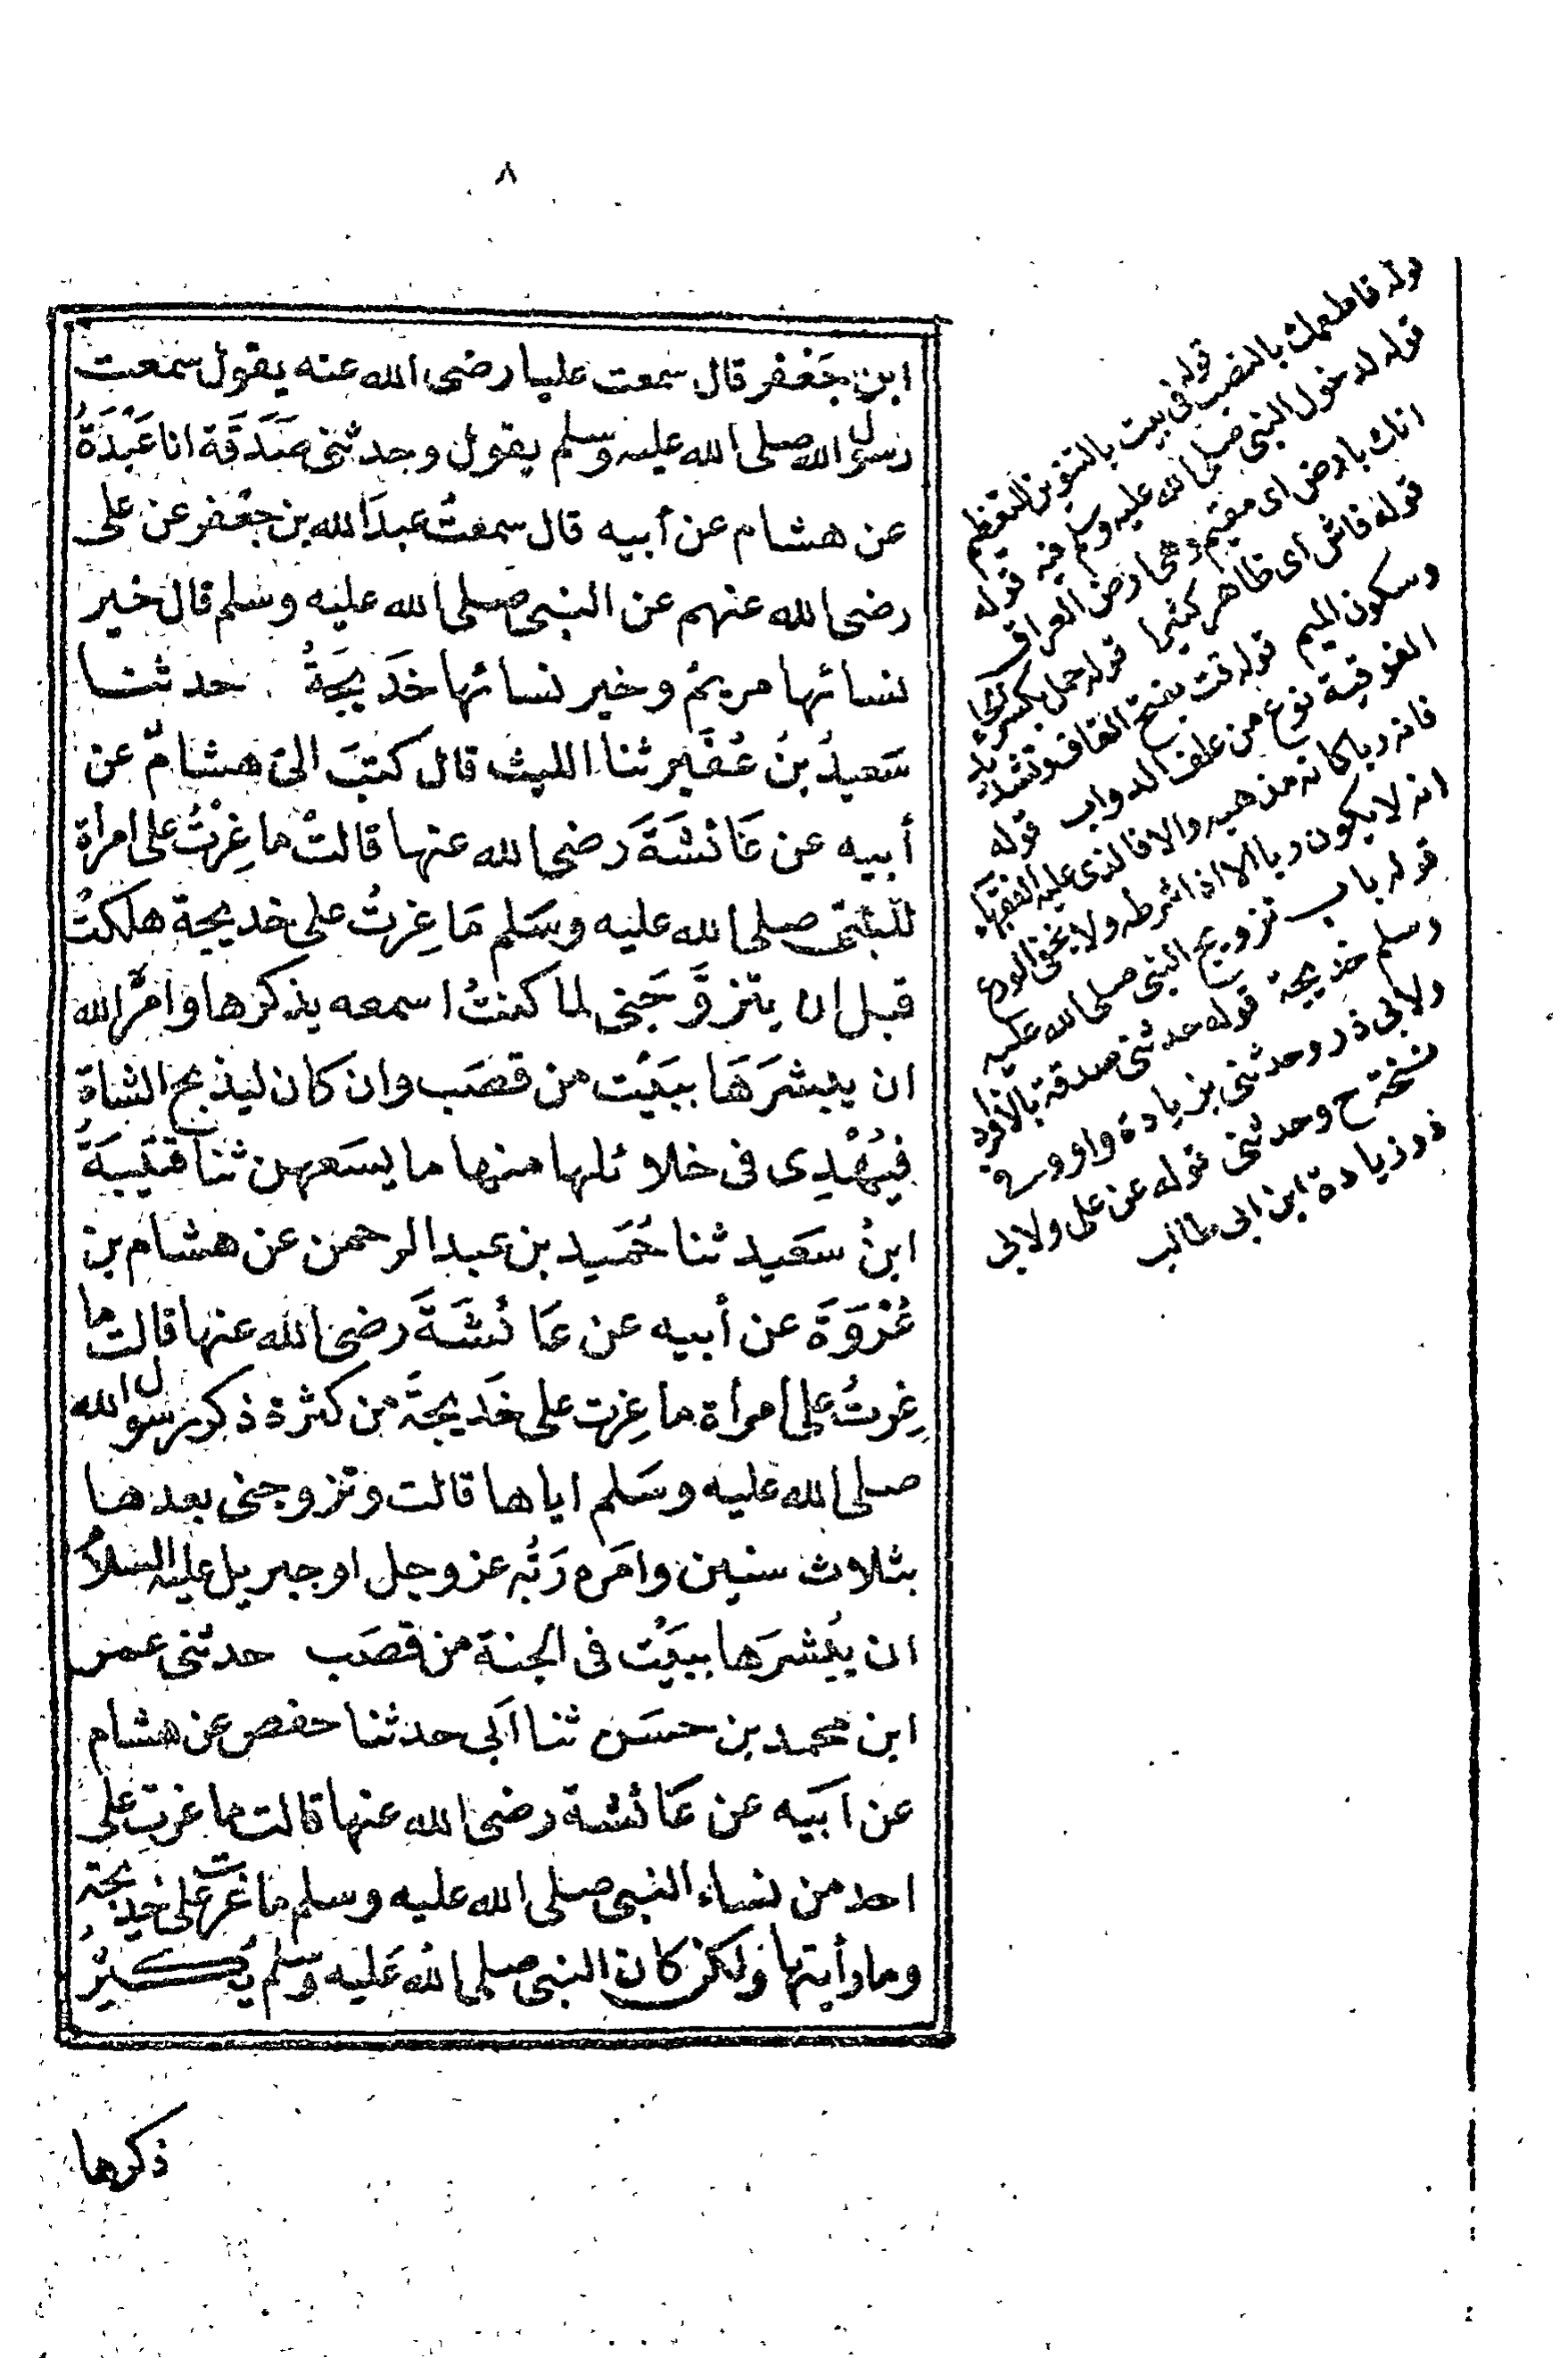 ٨
ابن جَعْفر قال سمعت عليا رضى الله عنه يقول سمعت
رسول الله صلى الله عليه وسلم يقول وحدثنى صَدَقَة انا عَبْدَةُ
عن هشام عن أبيه قال سمعتُ عبدَ الله بن جعْفر عن على
رضى الله عنهم عن النبى صلى الله عليه وسلم قال خير
نسائها مريمُ وخير نسائها خَديجَةُ حدثنا
سَعيدُ بنُ عُفَير ثنا الليث قال كتبَ الىَ هشامٌ عن
أبيه عن عَائشَةَ رضى الله عنها قالتْ ما غِرْتُ على امراة
للنبىّ صلى الله عليه وسَلم مَا غِرتُ على خديجة هلكتْ
قبل ان يتزوَّجَنى لما كنتُ اسمعه يذكرها وامرَه الله
ان يبشرَهَا ببَيْت من قصَب وان كان ليذبح الشاة
فيُهْدِى فى خلائلها منها ما يسَعهن ثنا قتَيبَةُ
ابنُ سَعيد ثنا حُمَيد بن عبد الرحمن عن هشام بن
عُرْوَةَ عن أبيه عن عَائشَةَ رضى الله عنها قالت ما
غِرتُ على امرأة ما غِرت على خَديجَة من كثرة ذكر رسول الله
صلى الله عليه وسَلم اياها قالت وتزوجنى بعدها
بثلاث سنين وامَره رَبُه عز وجل او جبريل عليه السلامُ
ان يُبشرَها ببَيْت فى الجنة من قصَب حدثنى عمر
ابن محمد بن حسَن ثنا ابى حدثنا حفص عن هشام
عن ابَيه عن عَائشة رضى الله عنها قالت ما غرت على
احد من نساء النبى صلى الله عليه وسلم ما غرت على خديجة
وما رأيتها ولكن كان النبى صلى الله عَليه وسَلم يُكثرُ
ذكرها
قوله فاطعمك بالنصب قوله فى بيت بالتنوين للتعظيم
قوله لدخول النبى صلى الله عليه وسلم فيه قوله
انك بارض اى مقيم وهى ارض العراق
قوله فاش اى ظاهر كثير قوله حمل بكسر الحاء
وسكون الميم قوله قت بفتح القاف وتشديد
الفوقية نوع من علف الدواب قوله
فانه ربا كانه مذهبه والا فالذى عليه الفقهاء
انه لا يكون ربا الا اذا شرطه ولا يخفى الورع
قوله باب تزويج النبى صلى الله عليه
وسلم خديجة قوله حدثنى صدقة بالافراد
ولابى ذر وحدثنى بزيادة واو وفى
نسخة ح وحدثنى قوله عن على ولابى
ذر زيادة ابن ابى طالب